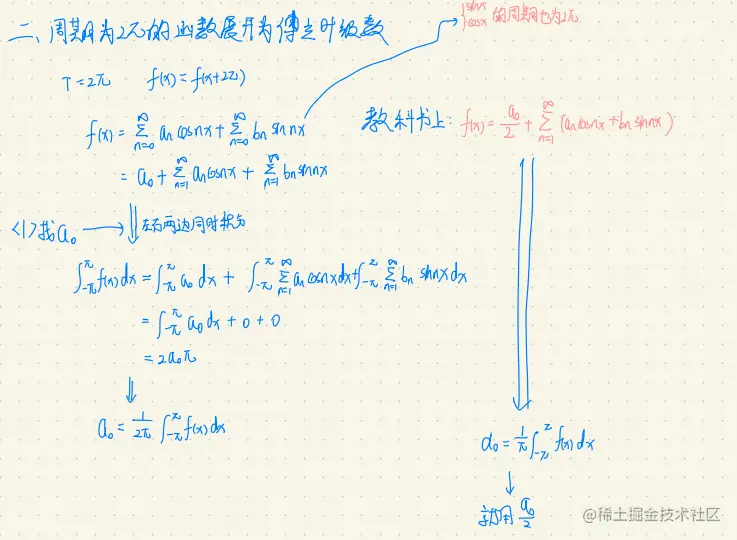 二、周期为2π的函数展开为傅立叶级数
{sinx cosx 的周期也为2π
T=2π f(x)=f(x+2π)
f(x)=∑_{n=0}^{∞} an cosnx+∑_{n=0}^{∞} bn sin nx
教科书上: f(x)=a₀/2+∑_{n=1}^{∞} (an cosnx+bn sinnx)
=a₀+∑_{n=1}^{∞} an cosnx+∑_{n=1}^{∞} bn sinnx
<1>找a₀ 左右两边同时积分
∫_{-π}^{π} f(x)dx=∫_{-π}^{π} a₀ dx+∫_{-π}^{π} ∑_{n=1}^{∞} an cosnx dx+∫_{-π}^{π} ∑_{n=1}^{∞} bn sinnx dx
=∫_{-π}^{π} a₀dx+0+0
=2a₀π
a₀=1/2π ∫_{-π}^{π} f(x)dx
a₀=1/π ∫_{-π}^{π} f(x)dx
就用 a₀/2
@稀土掘金技术社区